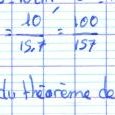 = 10/15,7 = 100/157
du théorème de